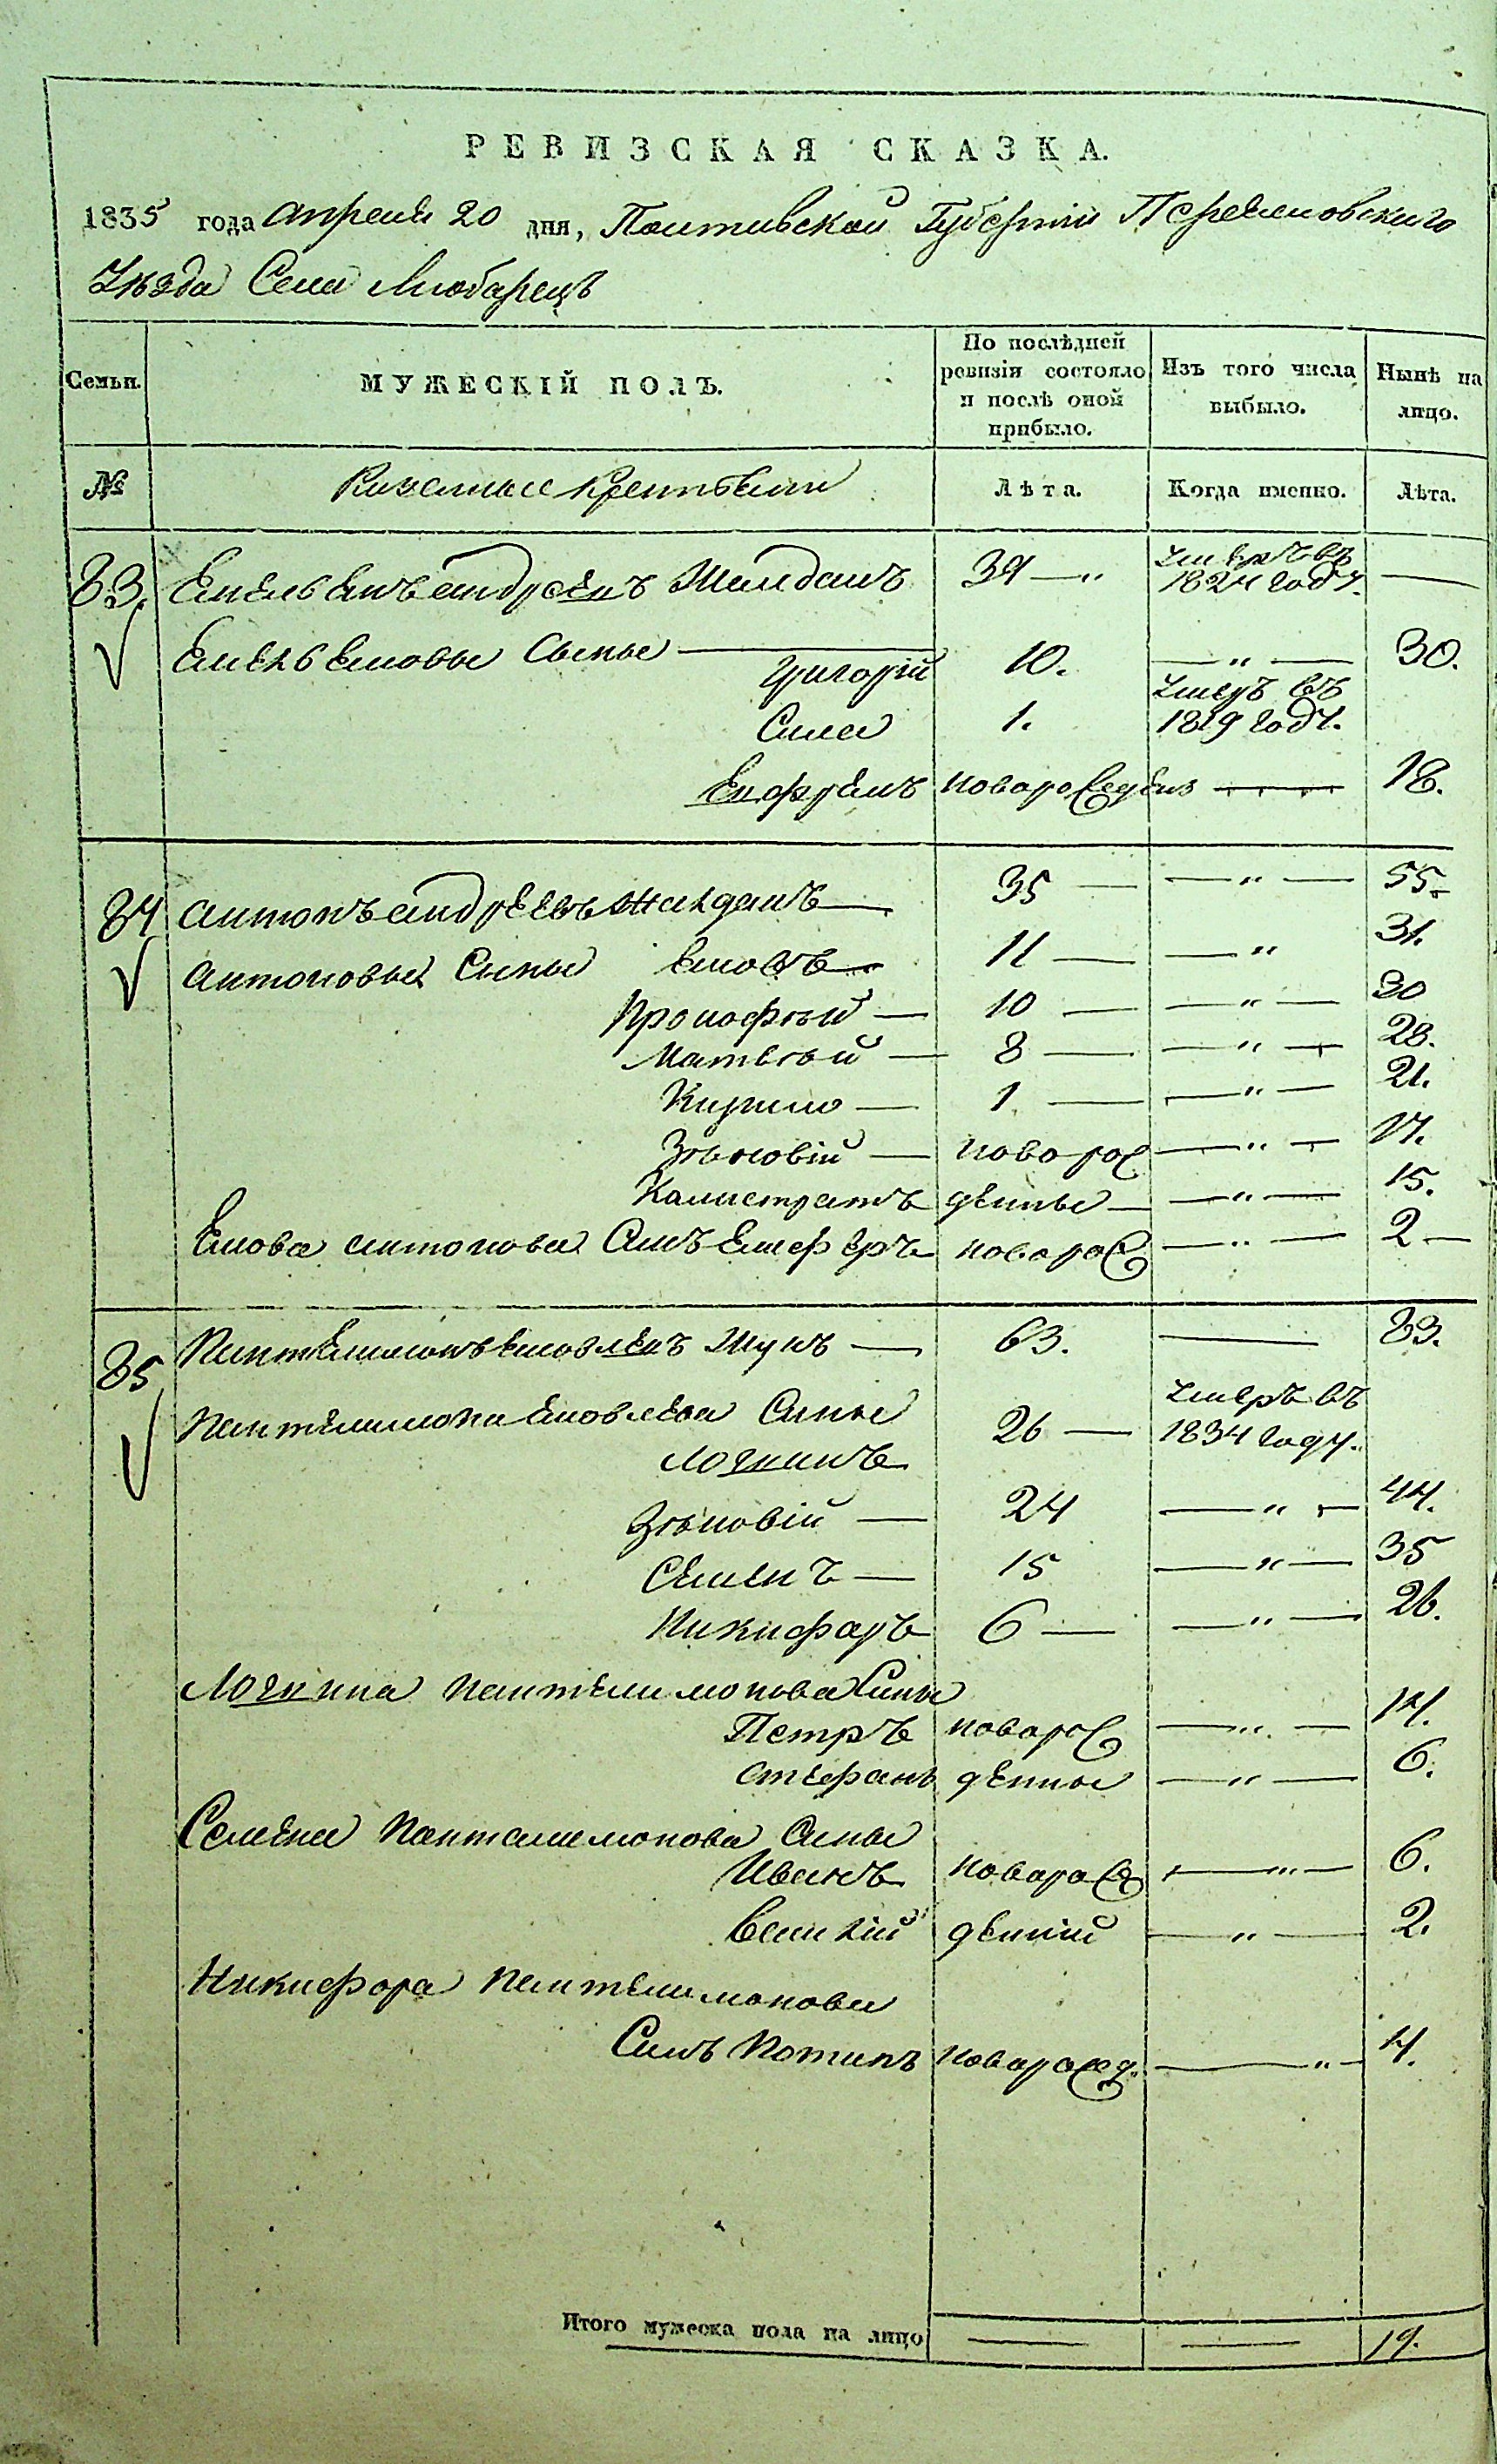 РЕВИЗСКАЯ СКАЗКА.
1835 года апреля 20 дня, Полтавской Губернии Переясловского
Уѣзда Села Любарецъ
Семьи.
МУЖЕСКІЙ ПОЛЪ.
По послѣдней ревизіи состояло и послѣ оной прибыло.
Изъ того числа выбыло.
Нынѣ на лицо.
№ Казенные крестьяне Лѣта. Когда именно. Лѣта.
83. Емельянъ андреевъ Жалданъ 39 — " умеръ въ 1824 году. —
Емельяновы Сыны —
Григорій 10. — " — 30.
Сила 1. умеръ въ 1819 году.
Евфремъ новорожденъ — 18.
84 антонъ андреевъ Жалданъ — 35 — — " — 55.
антоновы Сыны Яковъ — 11 — — " 31.
Прокофій — 10 — — " — 30
Матвѣй — 8 — — " — 28.
Кирило — 1. — — " — 21.
Зѣновій — новорож — " — 17.
Калистратъ денные — — " — 15.
Якова антонова Сынъ Елеферъ новорож — " — 2 —
85 Пантелимонъ Яковлевъ Жукъ — 63. — 83.
Пантелимона Яковлева Сыны
Логинъ 26 — умеръ въ 1834 году.
Зѣновій — 24 — " — 44.
Семенъ — 15 — " — 35
Никифоръ 6 — — " — 26.
Логина Пантелимонова Сыны
Петръ новорож — " — 14.
Стефанъ денные — " — 6.
Семена Панталимонова Сыны
Иванъ новорож — " — 6.
Василій денній — " — 2.
Никифора Пантелимонова
Сынъ Потапъ новорожд. — " — 4.
Итого мужеска пола на лицо — — 19.